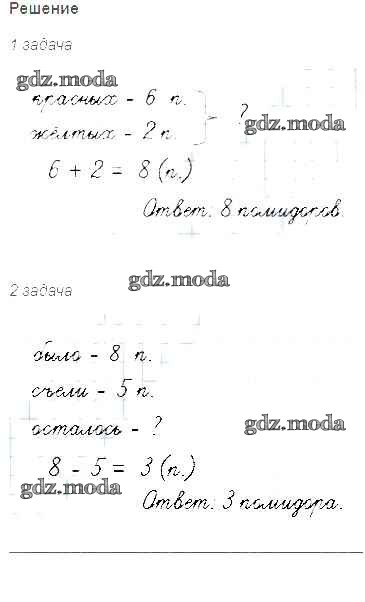 Решение
1 задача
gdz.moda
красных - 6 п.
жёлтых - 2 п. ?
gdz.moda
6 + 2 = 8 (п.)
Ответ: 8 помидоров.
gdz.moda
2 задача
было - 8 п.
съели - 5 п.
осталось - ?
gdz.moda
8 - 5 = 3 (п.)
gdz.moda
Ответ: 3 помидора.